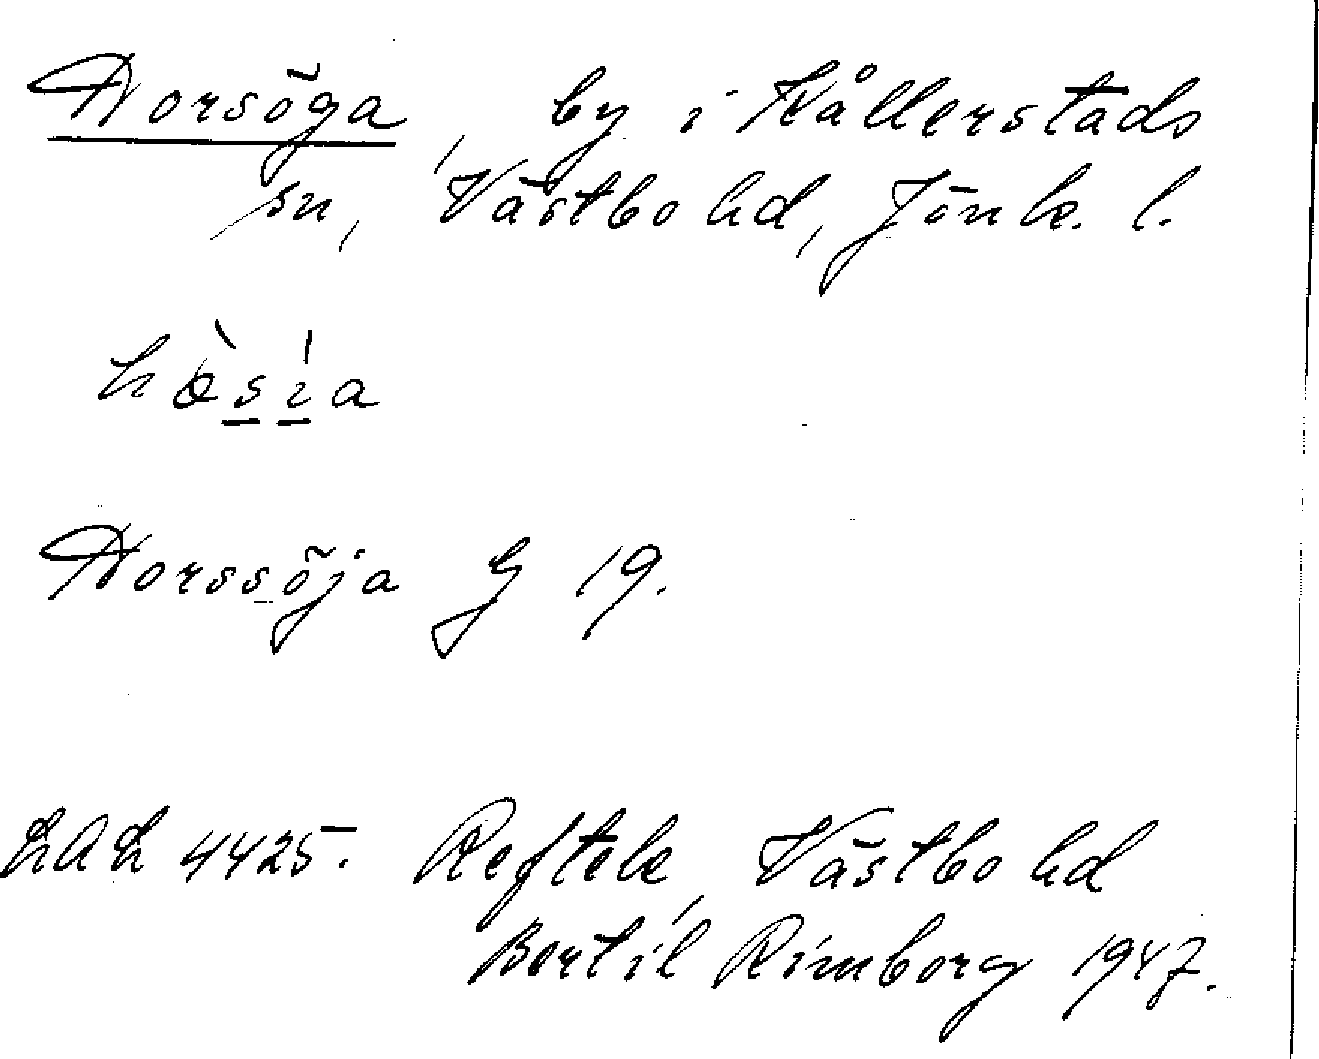 Horsöga, by i Kållerstads
sn, Västbo hd, Jönk. l.
hòsia
Horssöja G 19.
LAL 4425. Reftele, Västbo hd
Bertil Rimborg 1947.